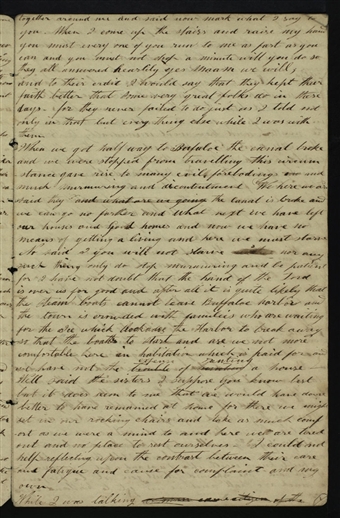 together around me and said now mark what I say to
you When I come up the stairs and raise my hand
you must every one of you run to me as fast as you
can and you must not stop a minute will you do so
they all answered heartily yes Maam we will
and to their credit I would say that they kept their
faith better than many great folks do in these
days for they never failed to do just as I told not
only in that but every thing else while I was with
them
When we got half way to Buffaloe the canal broke
and we were stopped from travelling this circum
stance gave rise to many evil forebodings and
much murmuring and discontentment We here
said they and what are we going the canal is broke and
we can go no farther and what next we have left
our houses and good homes and now we have no
means of getting a living and here we must starve
No said I you will not starve nor any
thing only do stop murmuring and be patient
for I have no doubt that the hand of the Lord
is over us for good and after all it is quite likely that
the steam boats cannot leave Buffaloe harbor and
the town is crowded with families who are waiting
for the ice which the Harbor to break away
so that the boats to start and are we not more
comfortable here in habitation which is paid for
we have not the expence renting a house
Well said the sisters I suppose you know best
but it does seem to me that we would have done
better to have remained at home for there we might
set in our rocking chairs and take as much comf
ort as we were a mind to and here we are tired
out and no place to rest ourselves I could not
help reflecting upon the contrast between their care
and fatigue and cause for complaint and my
own
While I was talking of the